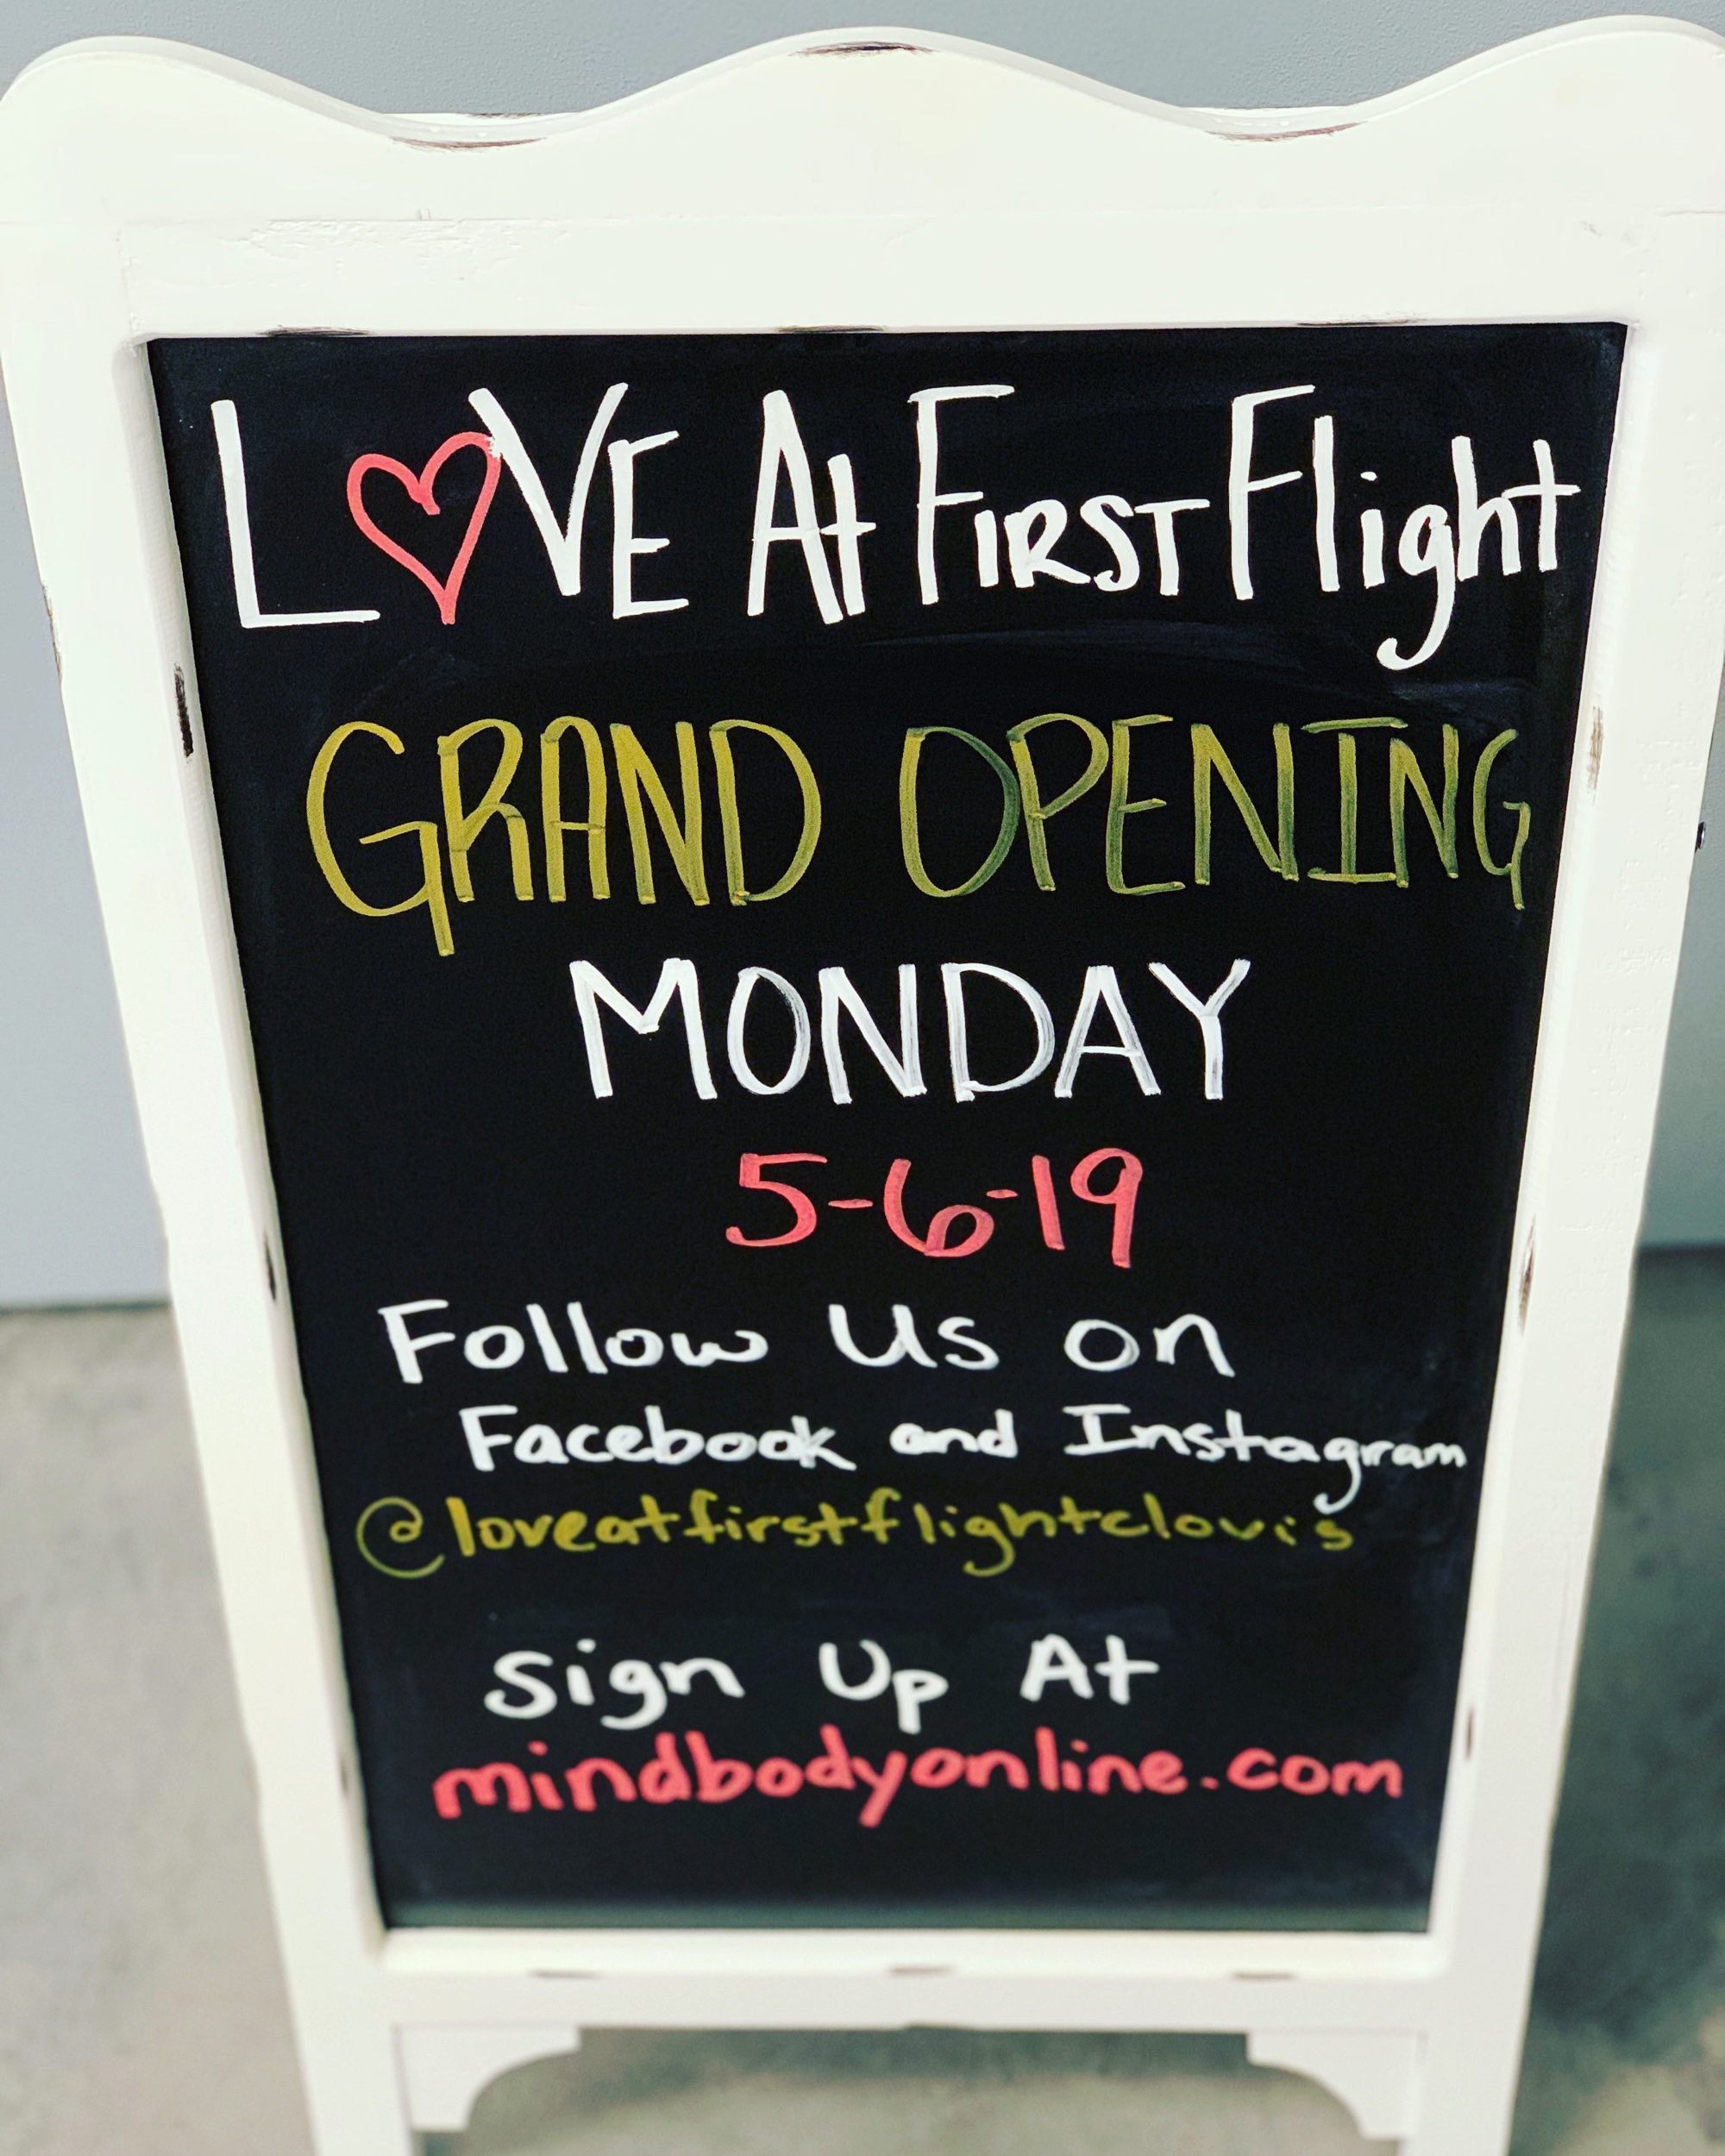 LOVE At FIRST Flight
GRAND OPENING
MONDAY
5-6-19
Follow Us on
Facebook and Instagram
@loveatfirstflightclovis
Sign Up At
mindbodyonline.com